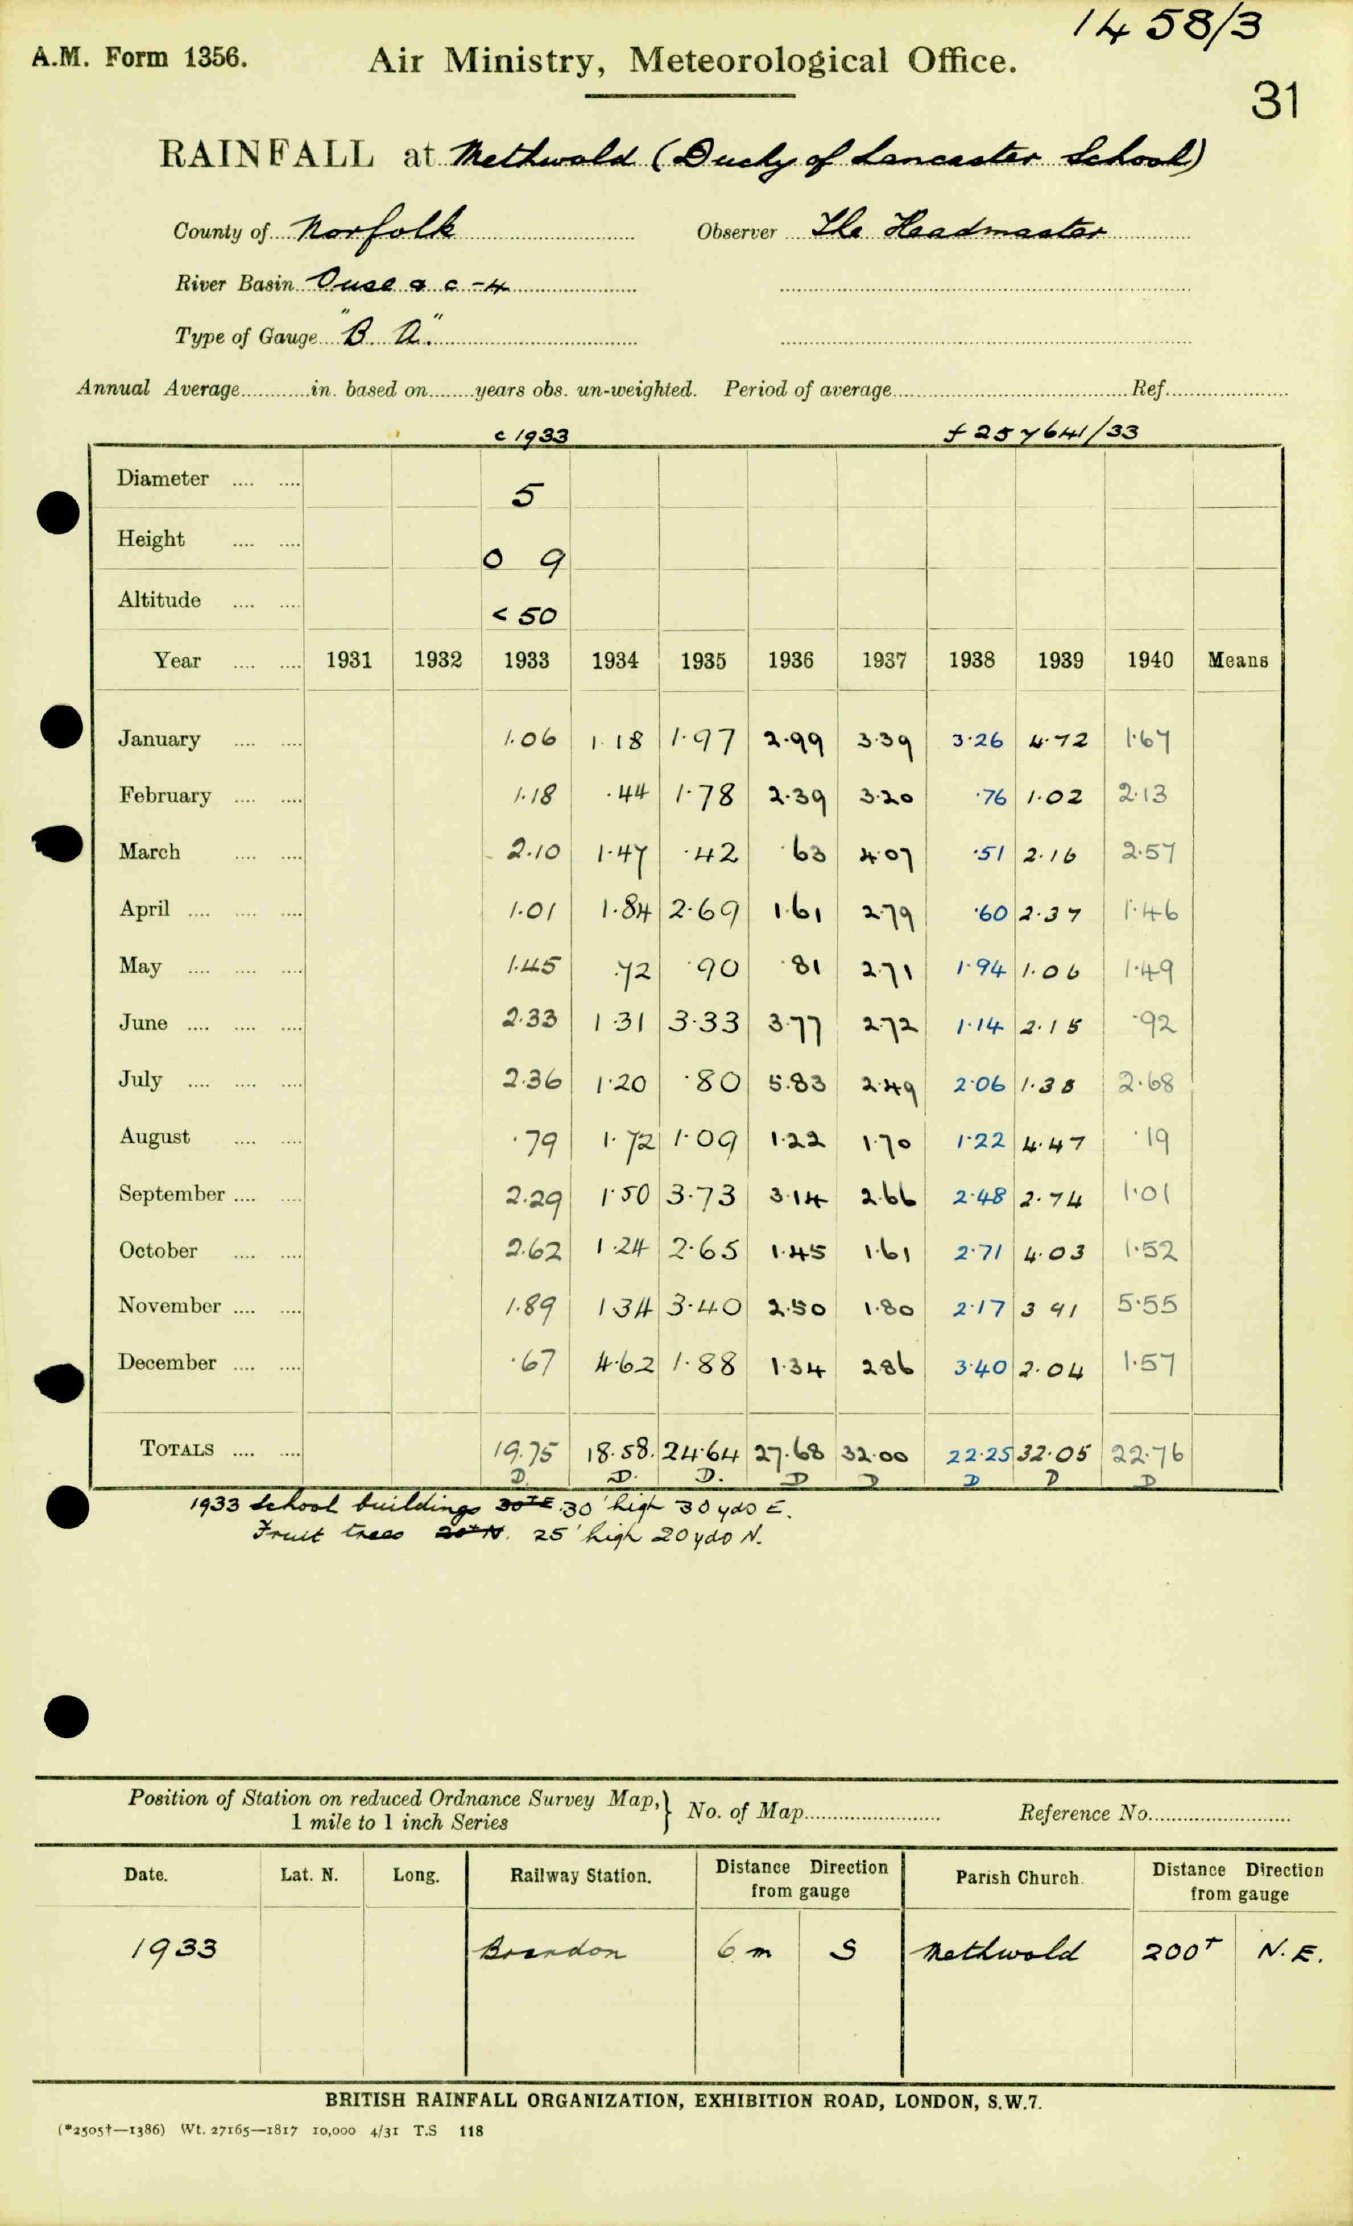 1458/3
A.M. Form 1356. Air Ministry, Meteorological Office.
31
RAINFALL at Methwold (Duchy of Lancaster School)
County of Norfolk Observer The Headmaster
River Basin Ouse & c - 4
Type of Gauge "B A".
Annual Average............in. based on........years obs. un-weighted. Period of average........................................Ref.....................
c 1933 f 257641/33
Diameter .... .... 5
Height .... .... 0 9
Altitude .... .... < 50
Year .... .... 1931 1932 1933 1934 1935 1936 1937 1938 1939 1940 Means
January .... .... 1.06 1.18 1.97 2.99 3.39 3.26 4.72 1.67
February .... .... 1.18 .44 1.78 2.39 3.20 .76 1.02 2.13
March .... .... 2.10 1.47 .42 .63 4.07 .51 2.16 2.57
April .... .... .... 1.01 1.84 2.69 1.61 2.79 .60 2.37 1.46
May .... .... .... 1.45 .72 .90 .81 2.71 1.94 1.06 1.49
June .... .... .... 2.33 1.31 3.33 3.77 2.72 1.14 2.15 .92
July .... .... .... 2.36 1.20 .80 5.83 2.49 2.06 1.38 2.68
August .... .... .79 1.72 1.09 1.22 1.70 1.22 4.47 .19
September .... .... 2.29 1.50 3.73 3.14 2.66 2.48 2.74 1.01
October .... .... 2.62 1.24 2.65 1.45 1.61 2.71 4.03 1.52
November .... .... 1.89 1.34 3.40 2.50 1.80 2.17 3 91 5.55
December .... .... .67 4.62 1.88 1.34 2.86 3.40 2.04 1.57
TOTALS .... .... 19.75 18.58. 24.64 27.68 32.00 22.25 32.05 22.76
D. D. D. D D D D D
1933 School buildings 30ft E. 30' high 30 yds E.
Fruit trees 20ft N. 25' high 20 yds N.
Position of Station on reduced Ordnance Survey Map,} No. of Map........................ Reference No.........................
1 mile to 1 inch Series
Date. Lat. N. Long. Railway Station. Distance Direction from gauge Parish Church. Distance Direction from gauge
1933 Brandon 6 m S Methwold 200+ N.E.
BRITISH RAINFALL ORGANIZATION, EXHIBITION ROAD, LONDON, S.W.7.
(*2505†—1386) Wt. 27165—1817 10,000 4/31 T.S 118